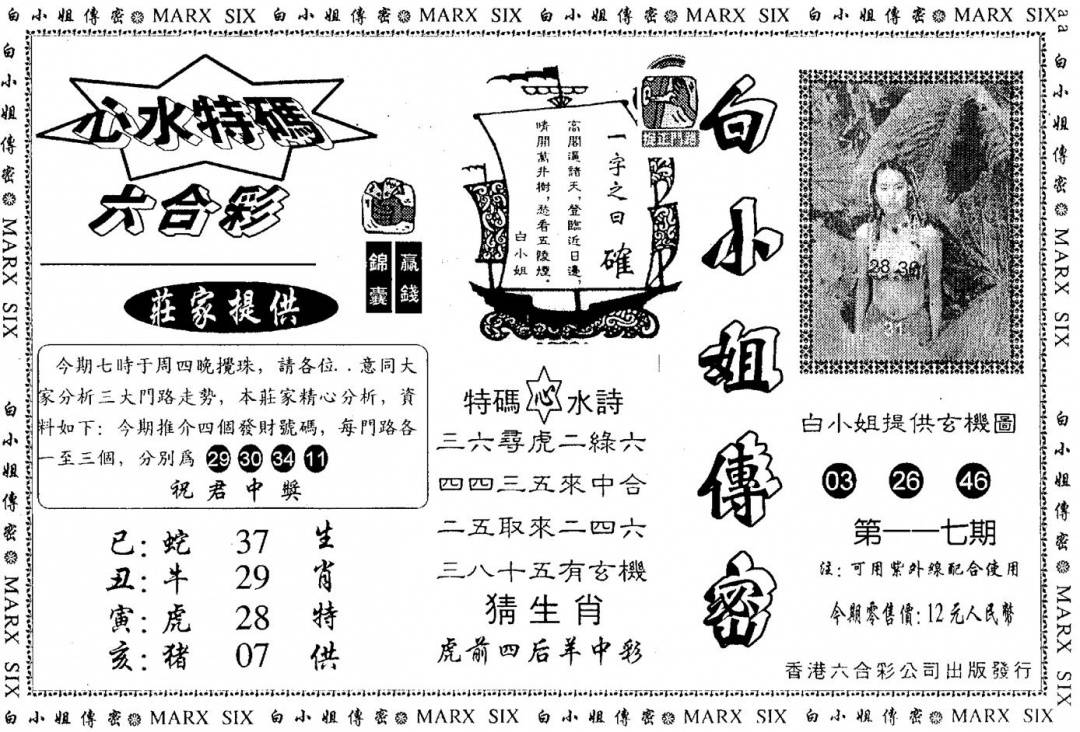 白小姐傳密 MARX SIX 白小姐傳密 MARX SIX 白小姐傳密 MARX SIX 白小姐傳密 MARX SIX
白小姐傳密 MARX SIX 白小姐傳密 MARX SIX
心水特碼
六合彩
錦囊
贏錢
莊家提供
今期七時于周四晚攪珠，請各位..意同大
家分析三大門路走勢，本莊家精心分析，資
料如下：今期推介四個發財號碼，每門路各
一至三個，分別爲 29 30 34 11
祝君中獎
巳：蛇 37
丑：牛 29
寅：虎 28
亥：猪 07
生肖特供
一字之曰 確
高閣漢諸天，登臨近日邊，
晴開萬井樹，愁看五陵煙。
白小姐
特碼心水詩
三六尋虎二綠六
四四三五來中合
二五取來二四六
三八十五有玄機
猜生肖
虎前四后羊中彩
白小姐傳密
28 30
31
白小姐提供玄機圖
03 26 46
第一一七期
注：可用紫外線配合使用
今期零售價：12元人民幣
香港六合彩公司出版發行
aa
白小姐傳密 MARX SIX 白小姐傳密 MARX SIX
白小姐傳密 MARX SIX 白小姐傳密 MARX SIX 白小姐傳密 MARX SIX 白小姐傳密 MARX SIX